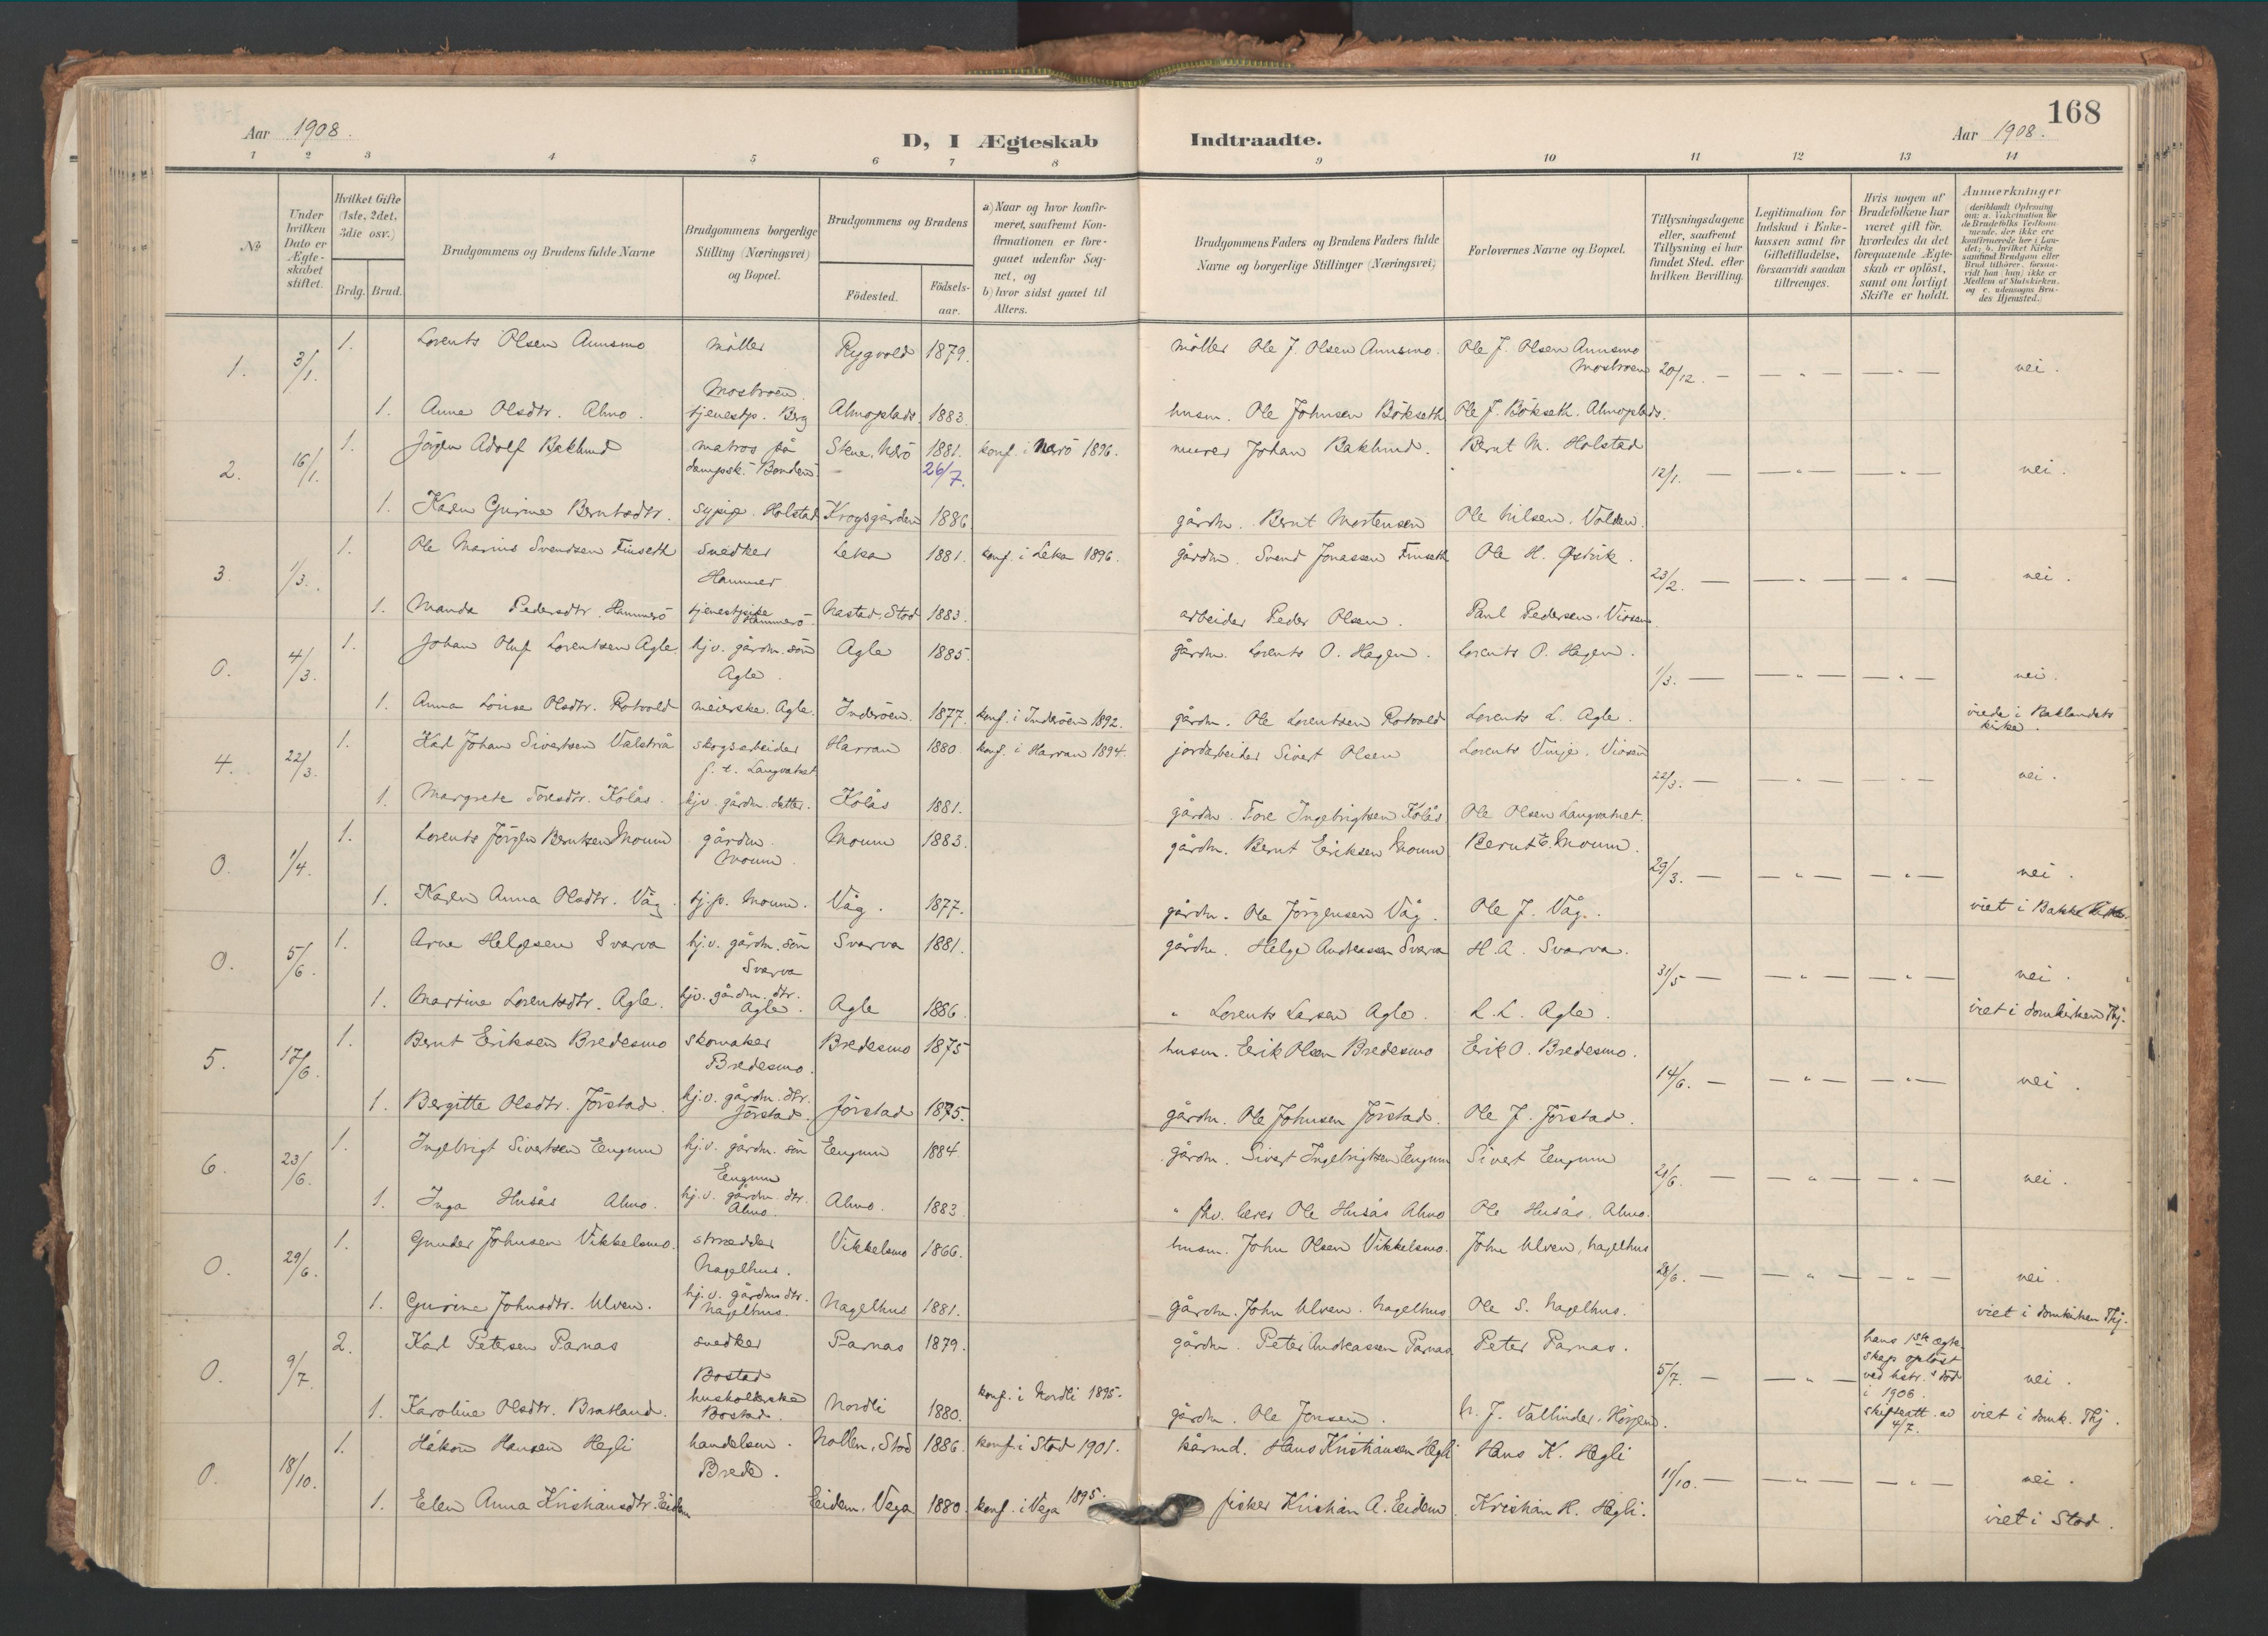 Aar 1908.
D, I Ægteskab Indtraadte.
168
Aar 1908.
1 2 3 4 5 6 7 8 9 10 11 12 13 14
№
Under hvilken Dato er Ægteskabet stiftet.
Hvilket Gifte (1ste, 2det, 3die osv.)
Brdg. Brud.
Brudgommens og Brudens fulde Navne
Brudgommens borgerlige Stilling (Næringsvei) og Bopæl.
Brudgommens og Brudens
Födested.
Födsels-aar.
a) Naar og hvor konfirmeret, saafremt Konfirmationen er foregaaet udenfor Sognet, og
b) hvor sidst gaaet til Alters.
Brudgommens Faders og Brudens Faders fulde Navne og borgerlige Stillinger (Næringsvei)
Forlovernes Navne og Bopæl.
Tillysningsdagene eller, saafremt Tillysning ei har fundet Sted, efter hvilken Bevilling.
Legitimation for Indskud i Enkekassen samt for Giftetilladelse, forsaavidt saadan tiltrænges.
Hvis nogen af Brudefolkene har været gift för, hvorledes da det foregaaende Ægteskab er oplöst, samt om lovligt Skifte er holdt.
Anmærkninger
(deriblandt Oplysning om: a. Vakcination for de Brudefolks Vedkommende, der ikke ere konfirmerede her i Landet; b. hvilket Kirkesamfund Brudgom eller Brud tilhörer, forsaavidt han (hun) ikke er Medlem af Statskirken, og c. udensogns Brudes Hjemsted.)
1. 3/1. 1. Lorents Olsen Aunsmo möller Mostroen. Rygvold 1879. möller Ole J. Olsen Aunsmo. Ole J. Olsen Aunsmo Mostroen 20/12. — — " — — " — nei.
1. Anne Olsdtr. Almo. tjenestp. Berg Almoplads. 1883. husm. Ole Johnsen Bökseth Ole J. Bökseth. Almoplads.
2. 16/1. 1. Jörgen Adolf Baklund matros på dampsk. "Bonden" Stene, Nærö 1881. 26/7. konf. i Nærö 1896. murer Johan Baklund. Bernt M. Holstad 12/1. — — " — — " — nei.
1. Karen Gurine Berntsdtr. sypige. Holstad Krogsgården 1886. gårdm. Bernt Mortensen Ole Nilsen. Volden.
3. 1/3. 1. Ole Marius Svendsen Finseth snedker Hammer Leka 1881. konf. i Leka 1896. gårdm. Svend Jonassen Finseth Ole H. Østvik. 23/2. — — " — — " — nei.
1. Manda Pedersdtr. Hammerö tjenestpige Hammerö. Nastad. Stod 1883. arbeider Peder Olsen. Paul Pedersen. Viosen.
0. 4/3. 1. Johan Oluf Lorentsen Agle. hj.v. gårdm. sön Agle. Agle 1885. gårdm. Lorents O. Hagen. Lorents O. Hagen. 1/3. — — " — — " — nei.
1. Anna Lovise Olsdtr. Rotvold meierske. Agle. Inderöen. 1877. konf. i Inderöen 1892. gårdm. Ole Lorentsen Rotvold Lorents L. Agle. viede i Baklandets kirke.
4. 22/3. 1. Karl Johan Sivertsen Valstrå skogsarbeider p. t. Langvatnet Harran 1880 konf. i Harran 1894. jordarbeider Sivert Olsen Lorents Vinje. Viosen 22/3. — — " — — " — nei.
1. Margrete Toresdtr. Kolås. hjv. gårdm. datter. Kolås 1881. gårdm. Tore Ingebrigtsen Kolås Ole Olsen Langvatnet.
0. 1/4. 1. Lorents Jörgen Berntsen Moum gårdm. Moum. Moum 1883. gårdm. Bernt Eriksen Moum Bernt E. Moum. 29/3. — — " — — " — nei.
1. Karen Anna Olsdtr. Våg. tj.p. Moum. Våg. 1877. gårdm. Ole Jörgensen Våg. Ole J. Våg. viet i Bakke
0. 5/6. 1. Arne Helgesen Svarva hj.v. gårdm. sön Svarva Svarva 1881. gårdm. Helge Andreassen Svarva H. A. Svarva. 31/5 — — " — — " — nei.
1. Martine Lorentsdtr. Agle. hjv. gårdm. dtr. Agle. Agle 1886. " Lorents Larsen Agle. L. L. Agle. viet i domkirken Thj.
5. 17/6. 1. Bernt Eriksen Bredesmo skomaker Bredesmo. Bredesmo 1875 husm. Erik Olsen Bredesmo Erik O. Bredesmo. 14/6. — — " — — " — nei.
1. Bergitte Olsdtr. Jörstad. hj.v. gårdm. dtr. Jörstad. Jörstad 1875. gårdm. Ole Johnsen Jörstad. Ole J. Jörstad.
6. 23/6. 1. Ingebrigt Sivertsen Eugum hj.v. gårdm. sön Eugum Eugum 1884. gårdm. Sivert Ingebrigtsen Eugum Sivert Eugum 21/6. — — " — — " — nei.
1. Inga Husås Almo. hj.v. gårdm. dtr. Almo. Almo. 1883. " fhv. lærer Ole Husås Almo Ole Husås. Almo.
0. 29/6. 1. Gunder Johnsen Vikkelsmo. skrædder Nagelhus. Vikkelsmo 1866. husm. John Olsen Vikkelsmo. John Ulven, Nagelhus 28/6. — — " — — " — nei.
1. Gurine Johnsdtr. Ulven. hj.v. gårdms dtr. Nagelhus. Nagelhus 1881. gårdm. John Ulven. Nagelhus Ole S. Nagelhus. viet i domkirken Thj.
0. 9/7. 2. Karl Petersen Parnas snedker Bostad Parnas 1879. gårdm. Peter Andreassen Parnas Peter Parnas. 5/7. — — " — hans 1ste ægteskap oplöst ved hstr. s död i 1906. skifteatt. av 4/7. nei.
1. Karoline Olsdtr. Bratland. husholderske Bostad. Nordli 1880. konf. i Nordli 1895. gårdm. Ole Jonsen. J. Vallinder, viet i domk. Thj.
0. 18/10. 1. Håkon Hansen Hegli handelsm. Brede. Nollen, Stod 1886. konf. i Stod 1901. kårmd. Hans Kristiansen Hegli Hans K. Hegli 11/10. — — " — — " — nei.
1. Elen Anna Kristiansdtr. Eidem Eidem. Vega 1880. konf. i Vega 1895. fisker Kristian A. Eidem. Kristian R. Hegli. viet i Stod.